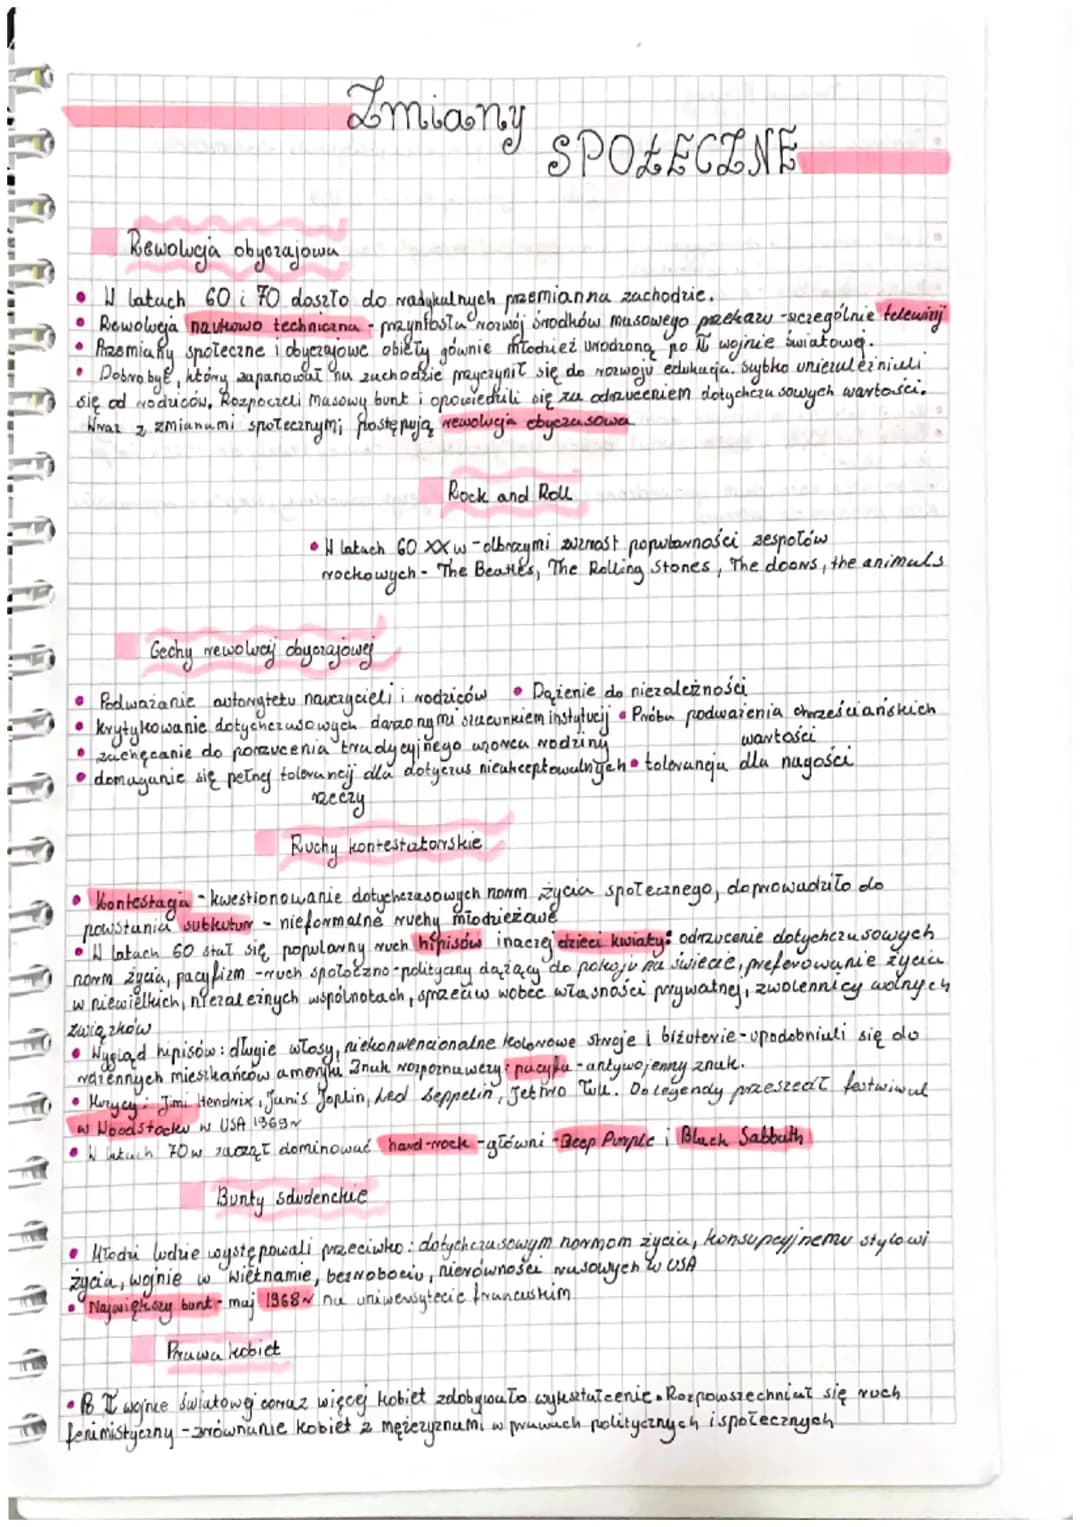 Zmiany
SPOŁECZNE
Rewolucja obyczajowa
• W latach 60 i 70 doszło do radykalnych przemian na zachodzie.
• Rewolucja naukowo techniczna - przyniosła rozwój środków masowego przekazu - szczególnie telewizji
• Przemiany społeczne i obyczajowe objęły gównie młodzież urodzoną po II wojnie światową.
• Dobrobyt, który zapanował na zachodzie przyczynił się do rozwoju edukacja. Szybko uniezależniali
się od rodziców. Rozpoczeli masowy bunt i opowiedzili się za odrzuceniem dotychczasowych wartości.
Wraz z zmianami społecznymi postępują rewolucja obyczasowa
Rock and Roll
• W latach 60 XX w - olbrzymi wzrost popularności zespołów
rockowych - The Beatles, The Rolling Stones, The doors, the animals
Cechy rewolucji obyczajowej
• Podważanie autorytetu nauczycieli i rodziców • Dążenie do niezależności
• krytykowanie dotychczasowych darzonymi szacunkiem instytucji • Próba podważenia chrześciańskich
wartości
• zachęcanie do porzucenia tradycyjnego wzorca rodziny
• domaganie się pełnej tolerancji dla dotyczas nieakceptowalnych • tolerancja dla nagości
rzeczy
Ruchy kontestatorskie
• Kontestacja - kwestionowanie dotychczasowych norm życia społecznego, doprowadziło do
powstania subkultur - nieformalne ruchy młodzieżowe
• W latach 60 stał się popularny ruch hipisów inaczej dzieci kwiaty: odrzucenie dotychczasowych
norm życia, pacyfizm - ruch społoczno-polityczny dążący do pokoju na świecie, preferowanie życia
w niewielkich, niezależnych wspólnotach, sprzeciw wobec własności prywatnej, zwolennicy wolnych
związków
• Wygląd hipisów: długie włosy, niekonwencionalne kolorowe stroje i biżuterie - upodobniali się do
rdzennych mieszkańców ameryki Znak rozpoznawczy: pacyfa - antywojenny znak.
• Muzycy: Jimi Hendrix, Janis Joplin, Led Zeppelin, Jethro Tull. Do legendy przeszedł festwiwal
w Woodstocku w USA 1969r
• W latach 70w zaczął dominować hard-rock - główni - Deep Purple i Black Sabbath
Bunty sdudenckie
• Młodzi ludzie występowali przeciwko: dotychczasowym normom życia, konsupcyjnemu stylowi
życia, wojnie w Wietnamie, bezrobociu, nierówności rasowych w USA
• Największy bunt - maj 1968r na uniwersytecie francuskim
Prawa kobiet
• Po II wojnie światowej coraz więcej kobiet zdobywało wykształcenie. Rozpowszechniał się ruch
feminystyczny - zrównanie kobiet z mężczyznami w prawach politycznych i społecznych